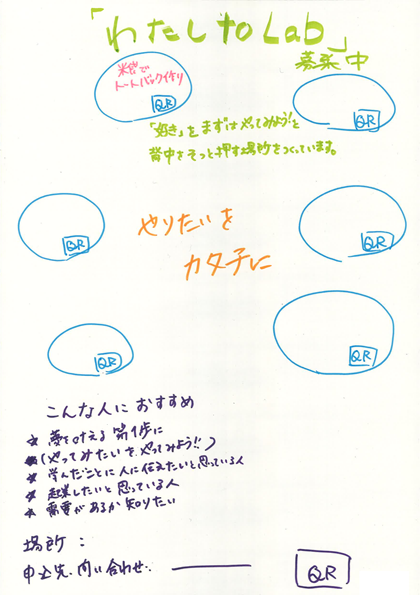 「わたし to Lab」
募集中
米袋で
トートバック作り
QR
QR
「好き」を まずは やってみよう!を
背中を そっと 押す 場所を つくっています。
QR
QR
やりたいを
カタチに
QR
QR
こんな人に おすすめ
★ 夢を叶える 第1歩に
★(やってみたいを、やってみよう!!)
★ 学んだことに 人に 伝えたいと思っている人
★ 起業したいと 思っている人
★ 需要があるか 知りたい
場所:
申込先・問い合わせ・
QR